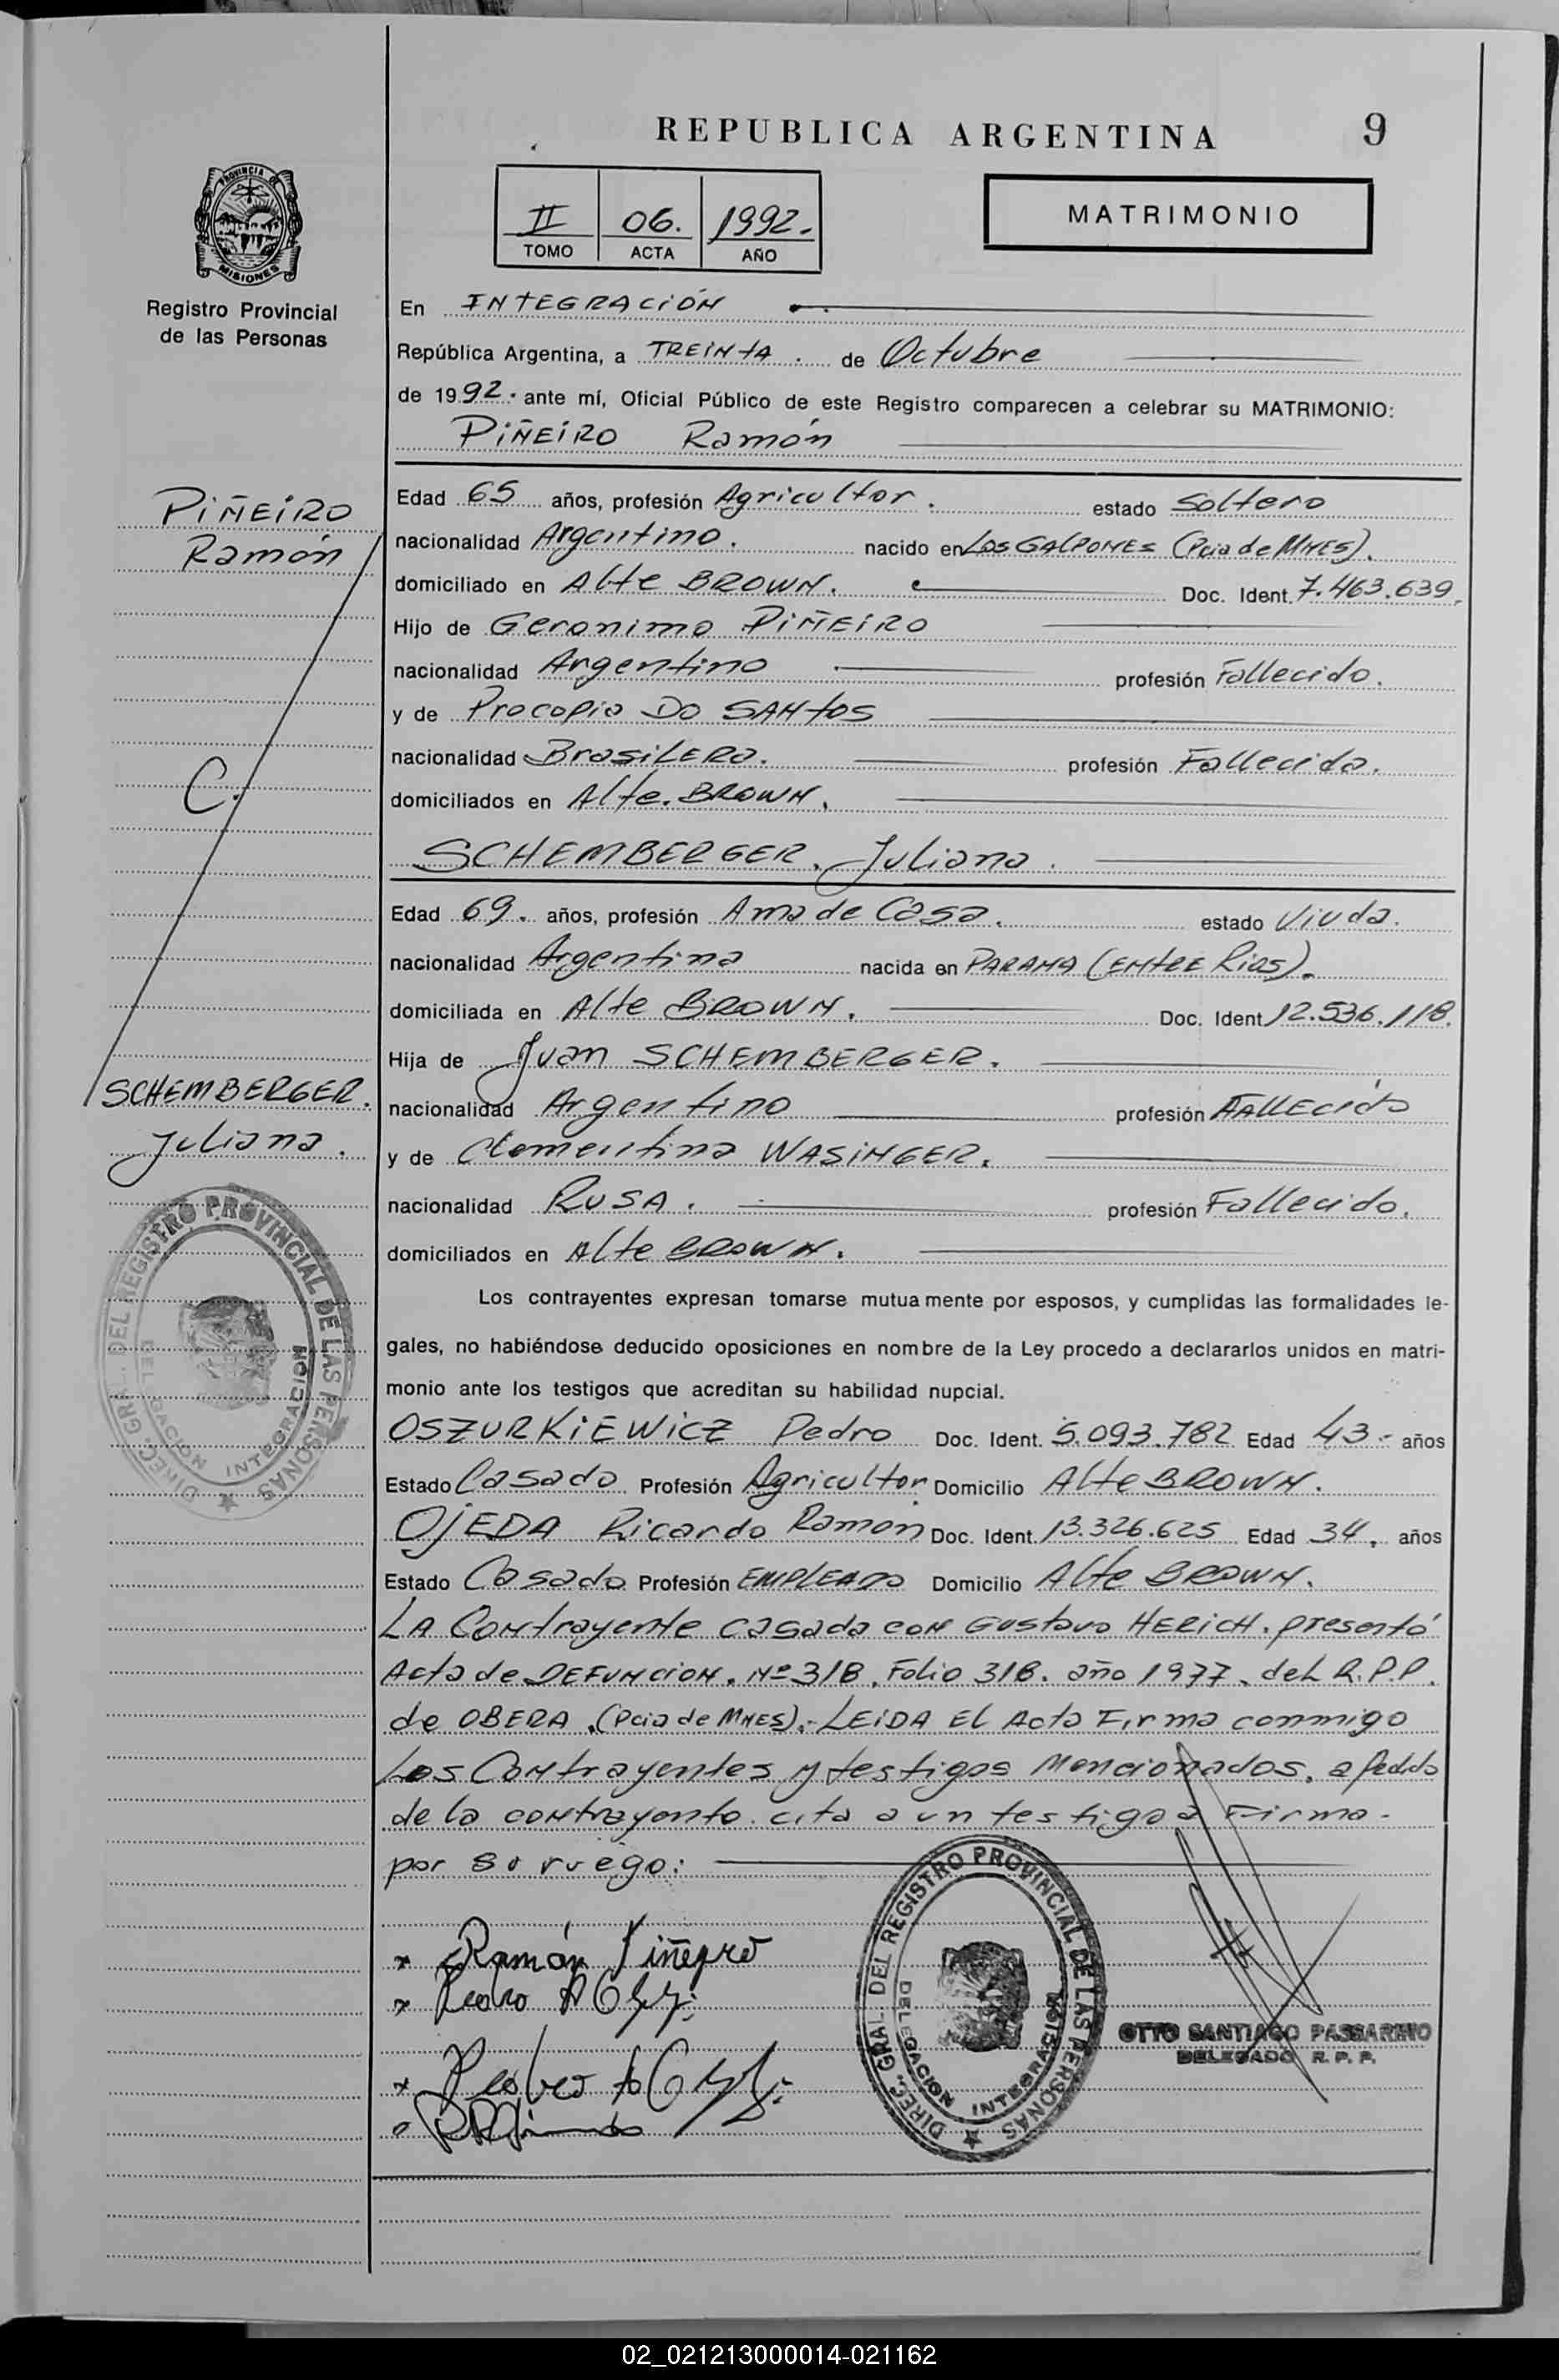 REPUBLICA ARGENTINA
9
PROVINCIA DE
MISIONES
Registro Provincial
de las Personas
II 06. 1992.
TOMO ACTA AÑO
MATRIMONIO
En INTEGRACIÓN
República Argentina, a TREINTA. de Octubre
de 1992. ante mí, Oficial Público de este Registro comparecen a celebrar su MATRIMONIO:
PIÑEIRO Ramón
PIÑEIRO
Ramón
C.
SCHEMBERGER.
Juliana.
Edad 65 años, profesión Agricultor. estado Soltero
nacionalidad Argentino. nacido en LOS GALPONES (Pcia de MNES).
domiciliado en Alte BROWN. Doc. Ident. 7.463.639.
Hijo de Geronimo PIÑEIRO
nacionalidad Argentino profesión Fallecido.
y de Procopia DO SANTOS
nacionalidad BrasiLERa. profesión Fallecida.
domiciliados en Alte. BROWN.
SCHEMBERGER. Juliana.
Edad 69. años, profesión Ama de Casa. estado Viuda.
nacionalidad Argentina nacida en PARANA (ENTRE Rios).
domiciliada en Alte BROWN. Doc. Ident 12.536.118.
Hija de Juan SCHEMBERGER.
nacionalidad Argentino profesión FALLECIDO
y de Clementina WASINGER.
nacionalidad RUSA. profesión Fallecido.
domiciliados en Alte BROWN.
Los contrayentes expresan tomarse mutuamente por esposos, y cumplidas las formalidades le-
gales, no habiéndose deducido oposiciones en nombre de la Ley procedo a declararlos unidos en matri-
monio ante los testigos que acreditan su habilidad nupcial.
OSZURKIEWICZ Pedro Doc. Ident. 5.093.782 Edad 43- años
Estado Casado Profesión Agricultor Domicilio Alte BROWN.
OJEDA Ricardo Ramon Doc. Ident. 13.326.625 Edad 34. años
Estado Casado Profesión EMPLEADO Domicilio Alte BROWN.
LA Contrayente casada con Gustavo HERICH. presentó
Acta de DEFUNCION. Nº 318. Folio 318. año 1977. del R.P.P.
de OBERA. (Pcia de MNES).- LEIDA El Acta Firma conmigo
Los Contrayentes y testigos Mencionados. a Pedido
de la contrayente. cita a un testigo a Firma-
por su ruego:
Ramón Piñeyro
DIREC. GRAL. DEL REGISTRO PROVINCIAL DE LAS PERSONAS
DELEGACION INTEGRACION
DIREC. GRAL. DEL REGISTRO PROVINCIAL DE LAS PERSONAS
DELEGACION INTEGRACION
OTTO SANTIAGO PASSARINO
DELEGADO R. P. P.
02_021213000014-021162